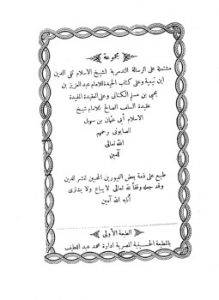 مجموعة
مشتملة على الرسالة التدمرية لشيخ الاسلام تقي الدين
ابن تيمية وعلى كتاب الحيدة للامام عبد العزيز بن
يحيى بن مسلم الكناني وعلى العقيدة المفيدة
عقيدة السلف الصالح للامام شيخ
الاسلام أبي عثمان بن سهيل
الصابوني رحمهم
الله تعالى
آمين
طبع على نفقة بعض الغيورين المحبين لنشر الدين
وقد جعله وقفا لله تعالى لا يباع ولا يشترى
أثابه الله آمين
الطبعة الأولى
بالمطبعة الحسينية المصرية ادارة محمد عبد اللطيف